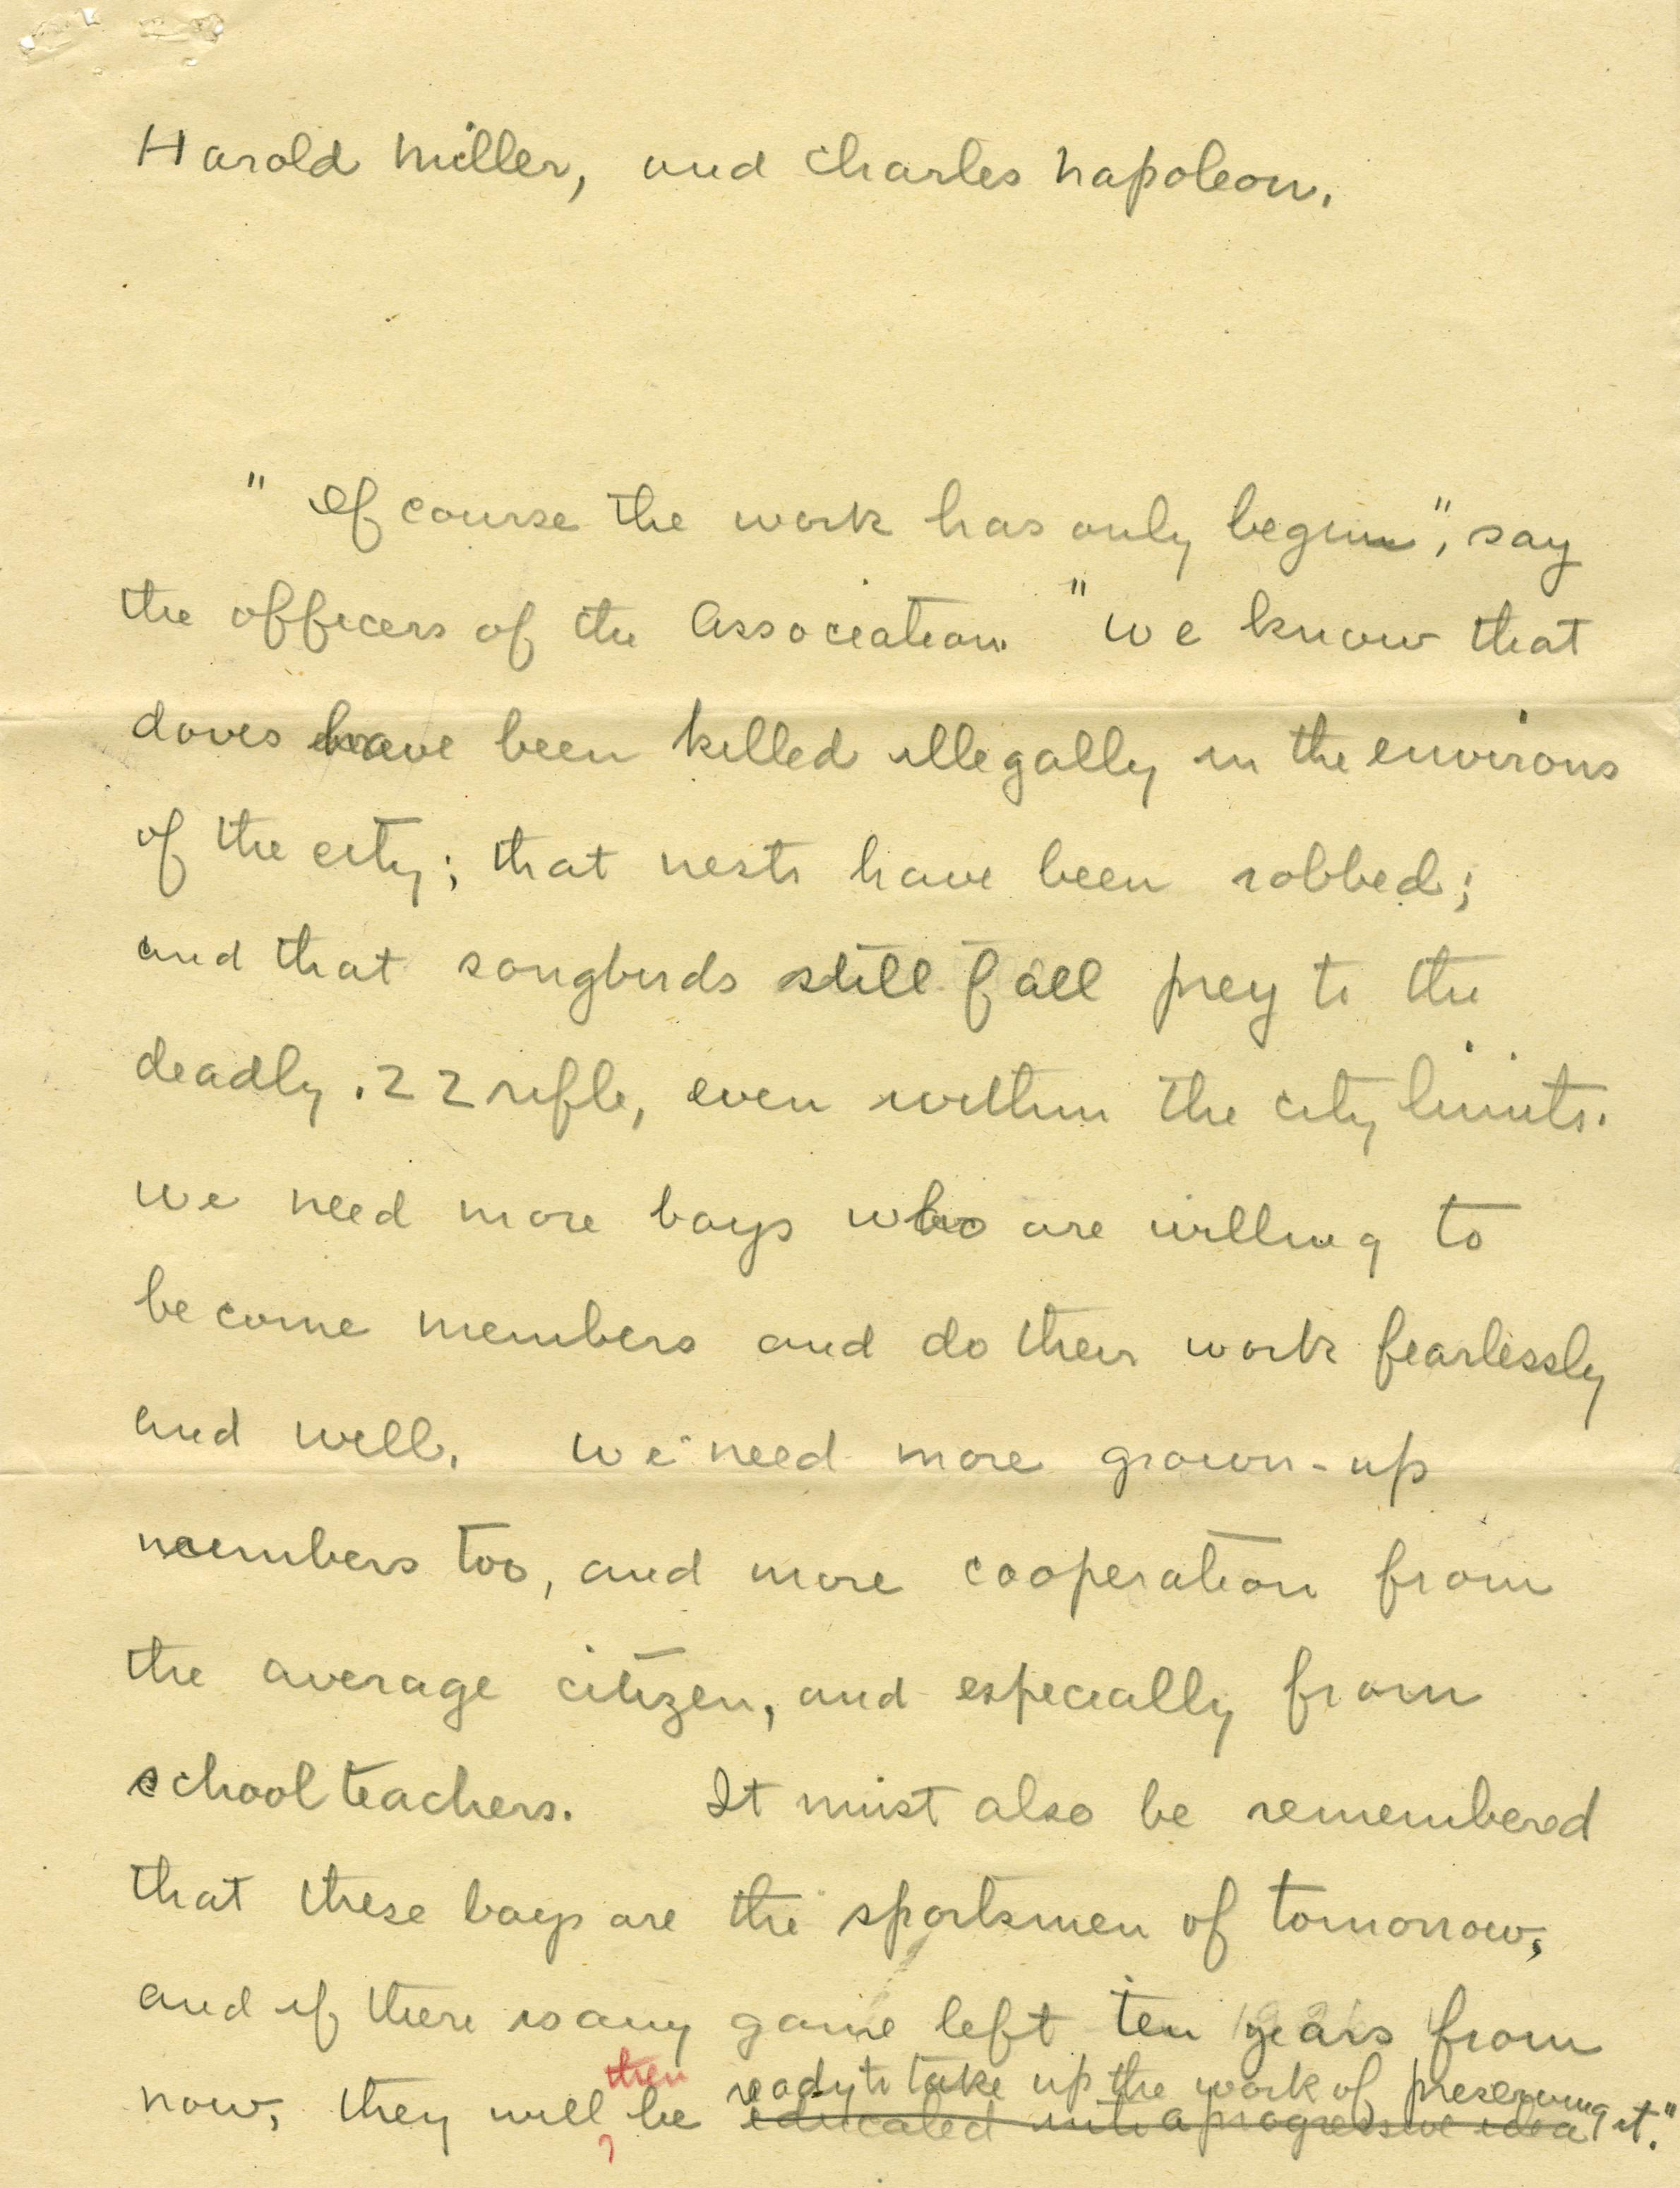 Harold Miller, and Charles Napoleon.
" Of course the work has only begun", say
the officers of the Association. "We know that
doves have been killed illegally in the environs
of the city; that nests have been robbed;
and that songbirds still fall prey to the
deadly .22 rifle, even within the city limits.
We need more boys who are willing to
become members and do their work fearlessly
and well. We need more grown-up
members too, and more cooperation from
the average citizen, and especially from
school teachers. It must also be remembered
that these boys are the sportsmen of tomorrow,
and if there is any game left ten years from
then ready to take up the work of preserving it."
now, they will be educated into a progressive idea